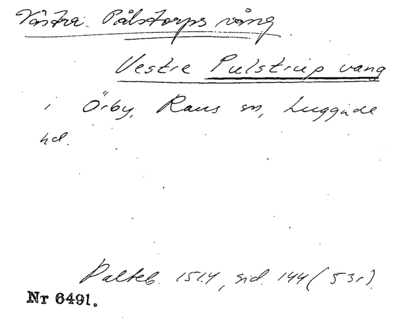 Västra Pålstorps vång
Vestre Pulstrup vang
i Örby, Raus sn, Luggude
hd.
Palteb. 1514, sid. 144 (53r).
Nr 6491.